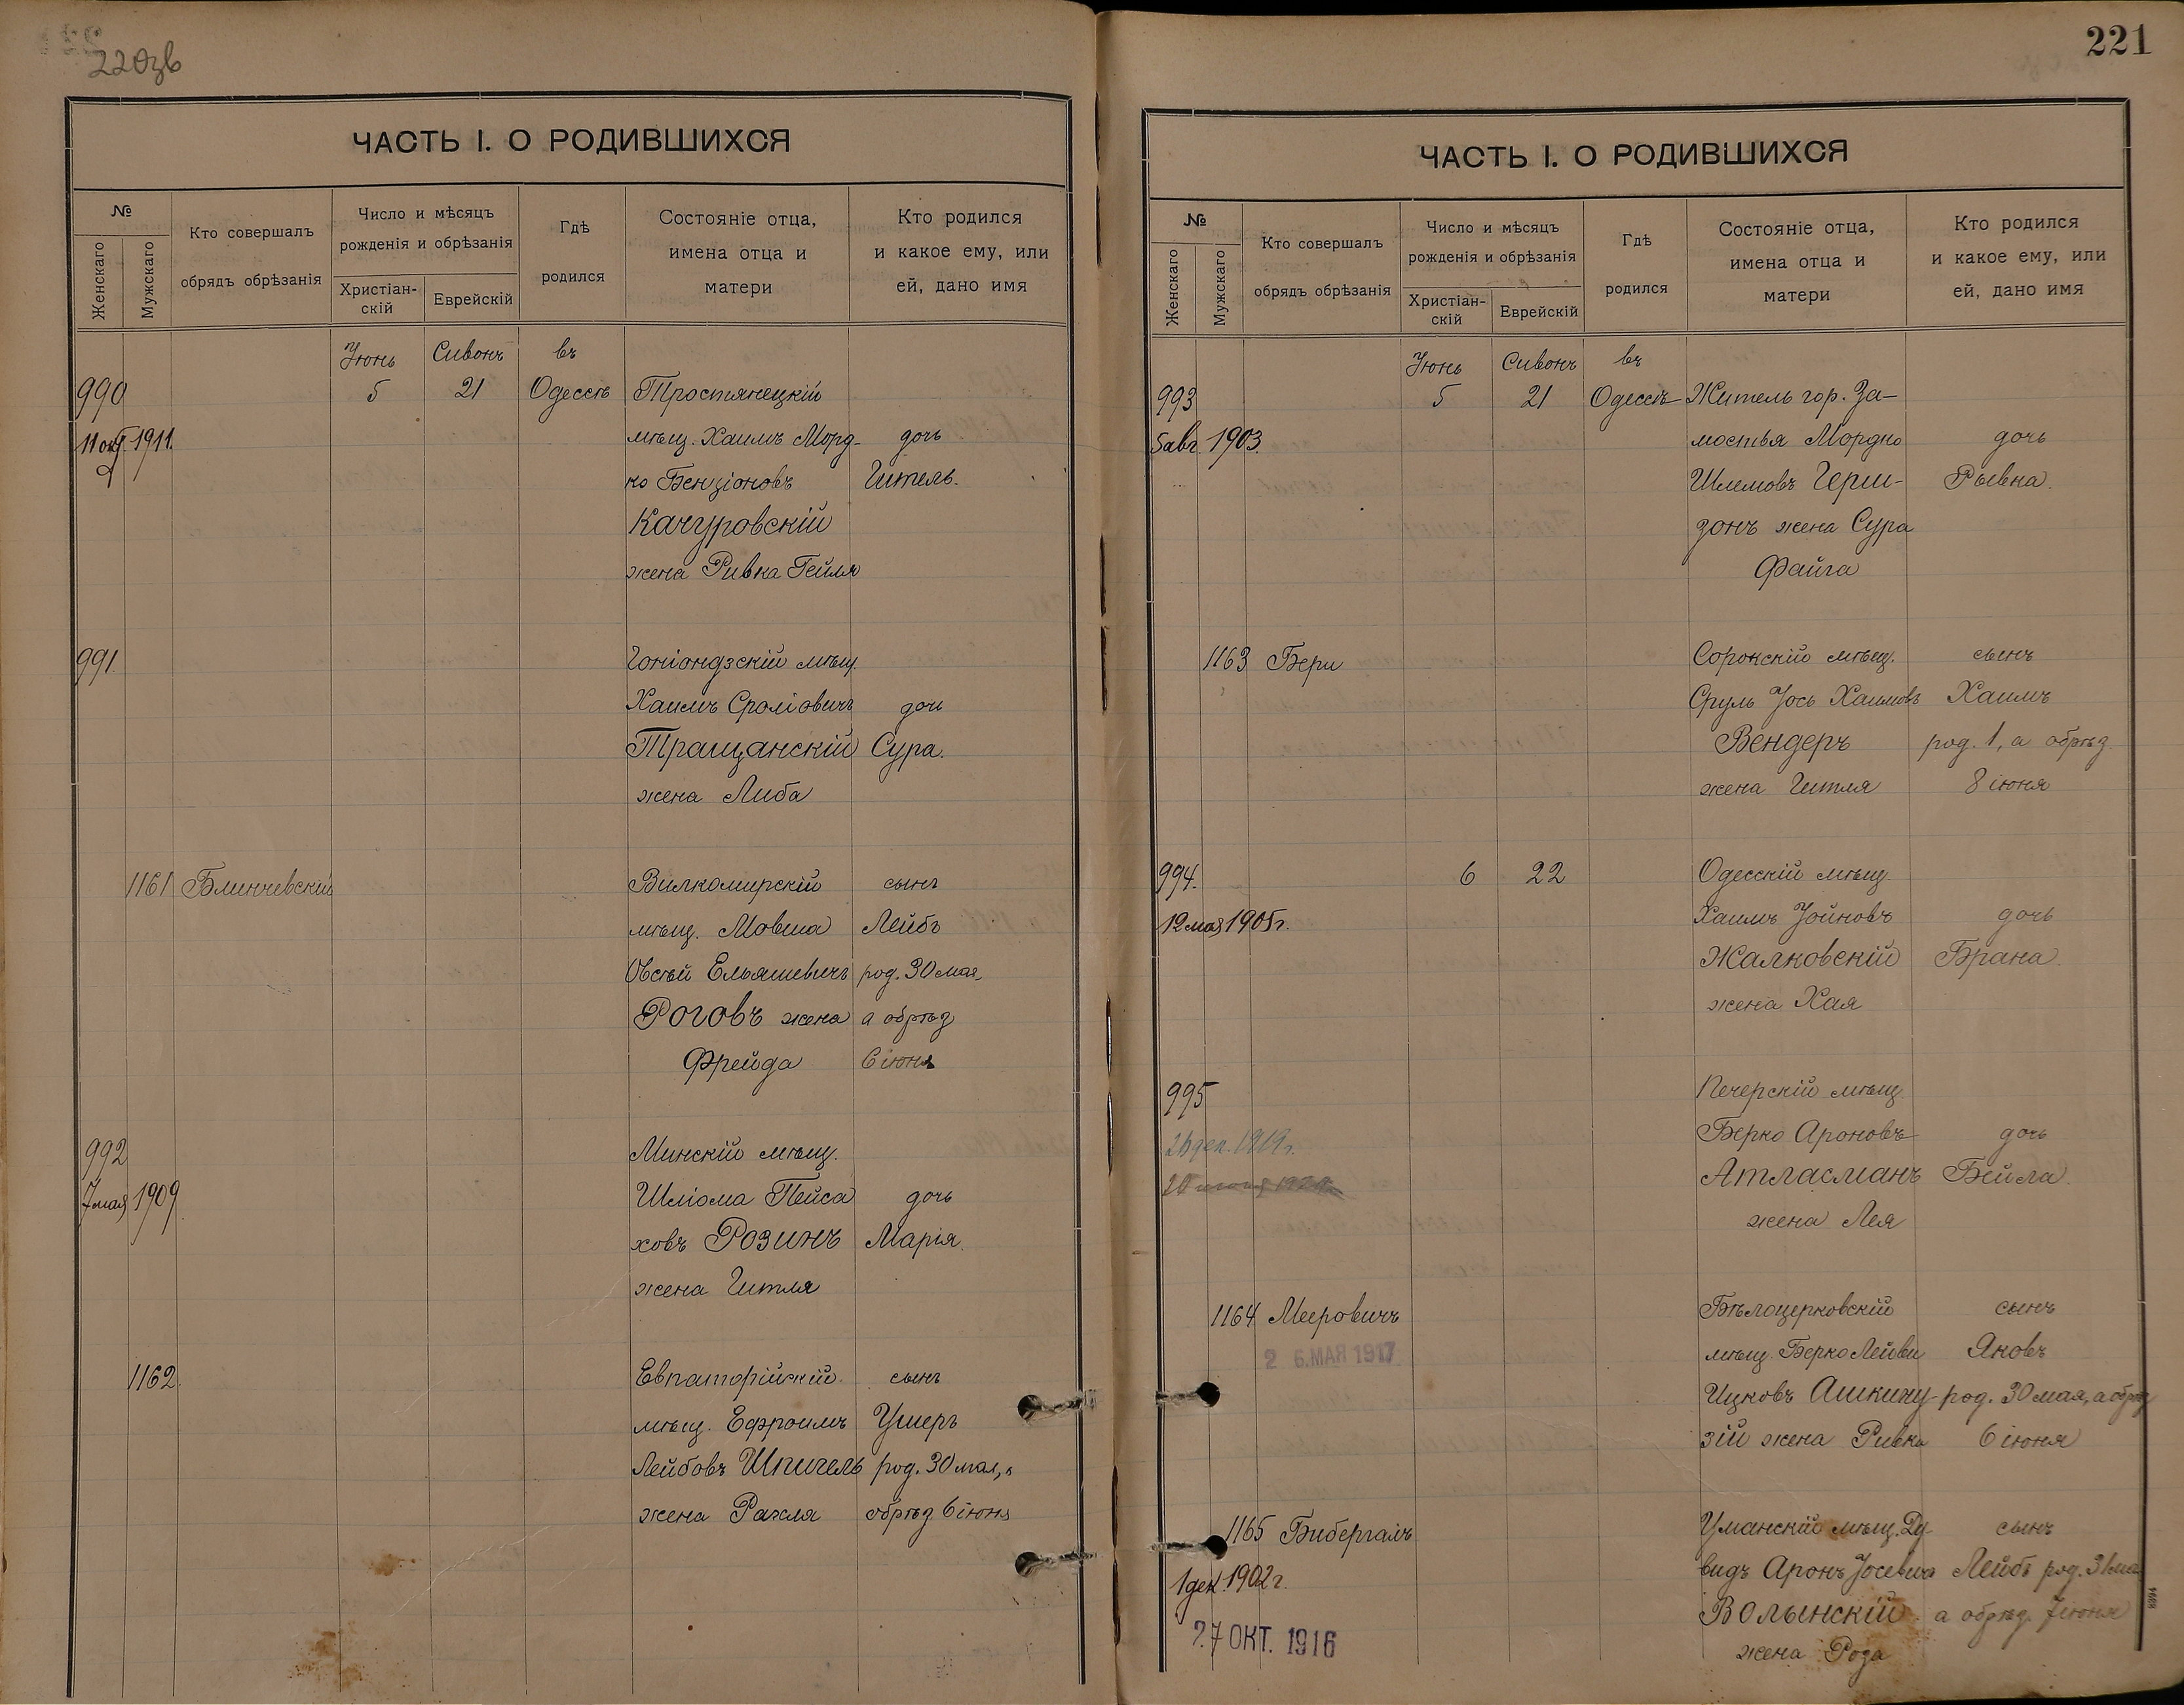 220зв
ЧАСТЬ I. О РОДИВШИХСЯ
№
Женскаго
Мужскаго
Кто совершалъ
обрядъ обрѣзанія
Число и мѣсяцъ
рожденія и обрѣзанія
Христіан-
скій
Еврейскій
Гдѣ
родился
Состояніе отца,
имена отца и
матери
Кто родился
и какое ему, или
ей, дано имя
Іюнь Сивонъ въ
990 5 21 Одессѣ Тростянецкій
11 окт. 1911. мѣщ. Хаимъ Морд- дочь
ко Бенціоновъ Гитель.
Качуровскій
жена Ривка Гейля
991. Гоніондзскій мѣщ.
Хаимъ Сроліовичъ дочь
Тращанскій Сура.
жена Либа
1161 Блинчевскій Вилкомирскій сынъ
мѣщ. Мовша Лейбъ
Овсѣй Ельяшевичъ род. 30 мая,
Роговъ жена а обрѣз
Фрейда 6 іюня
992 Минскій мѣщ.
7 мая 1909 Шліома Пейса дочь
ховъ Розинъ Марія.
жена Гитля
1162. Евпаторійскій сынъ
мѣщ. Ефроимъ Ушеръ
Лейбовъ Шпигель род. 30 мая, а
жена Рахля обрѣз 6 іюня
221
ЧАСТЬ I. О РОДИВШИХСЯ
№
Женскаго
Мужскаго
Кто совершалъ
обрядъ обрѣзанія
Число и мѣсяцъ
рожденія и обрѣзанія
Христіан-
скій
Еврейскій
Гдѣ
родился
Состояніе отца,
имена отца и
матери
Кто родился
и какое ему, или
ей, дано имя
Іюнь Сивонъ въ
993 5 21 Одессѣ Житель гор. За-
5 авг. 1903. мостья Мордко дочь
Шлемовъ Герш- Рывка.
зонъ жена Сура
Файга
1163 Бери Сорокскій мѣщ. сынъ
Сруль Іось Хаимовъ Хаимъ
Вендеръ род. 1, а обрѣз
жена Гитля 8 іюня
994. 6 22 Одесскій мѣщ.
12 мая 1905 г. Хаимъ Іойновъ дочь
Жалковскій Брана.
жена Хая
995 Печерскій мѣщ
26 дек. 1919 г. Берко Ароновъ дочь
Атласманъ Бейла.
жена Лея
1164 Мееровичъ Бѣлоцерковскій сынъ
2 6. МАЯ 1917 мѣщ. Берко Лейви Яковъ
Ицковъ Ашкину- род. 30 мая, а обрѣз
зій жена Ривка 6 іюня
1165 Бибергалъ Уманскій мѣщ. Да- сынъ
1 дек. 1902 г. видъ Аронъ Іосевичъ Лейбъ род. 31 мая
Волынскій а обрѣз. 7 іюня
27 ОКТ. 1916 жена Роза